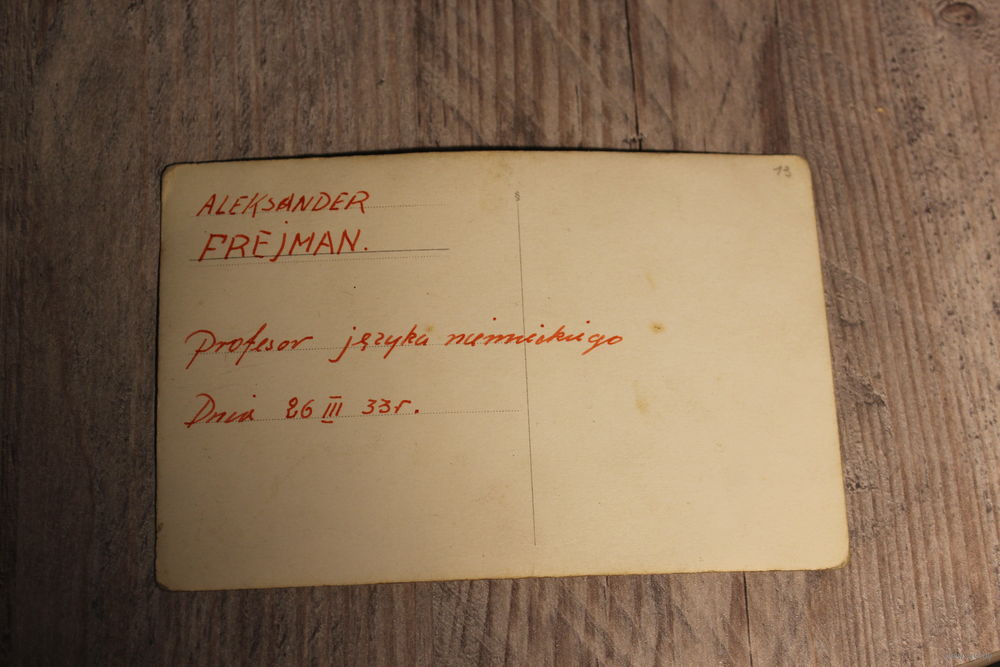 13
ALEKSANDER
FREJMAN.
Profesor języka niemieckiego
Dnia 26 III 33r.